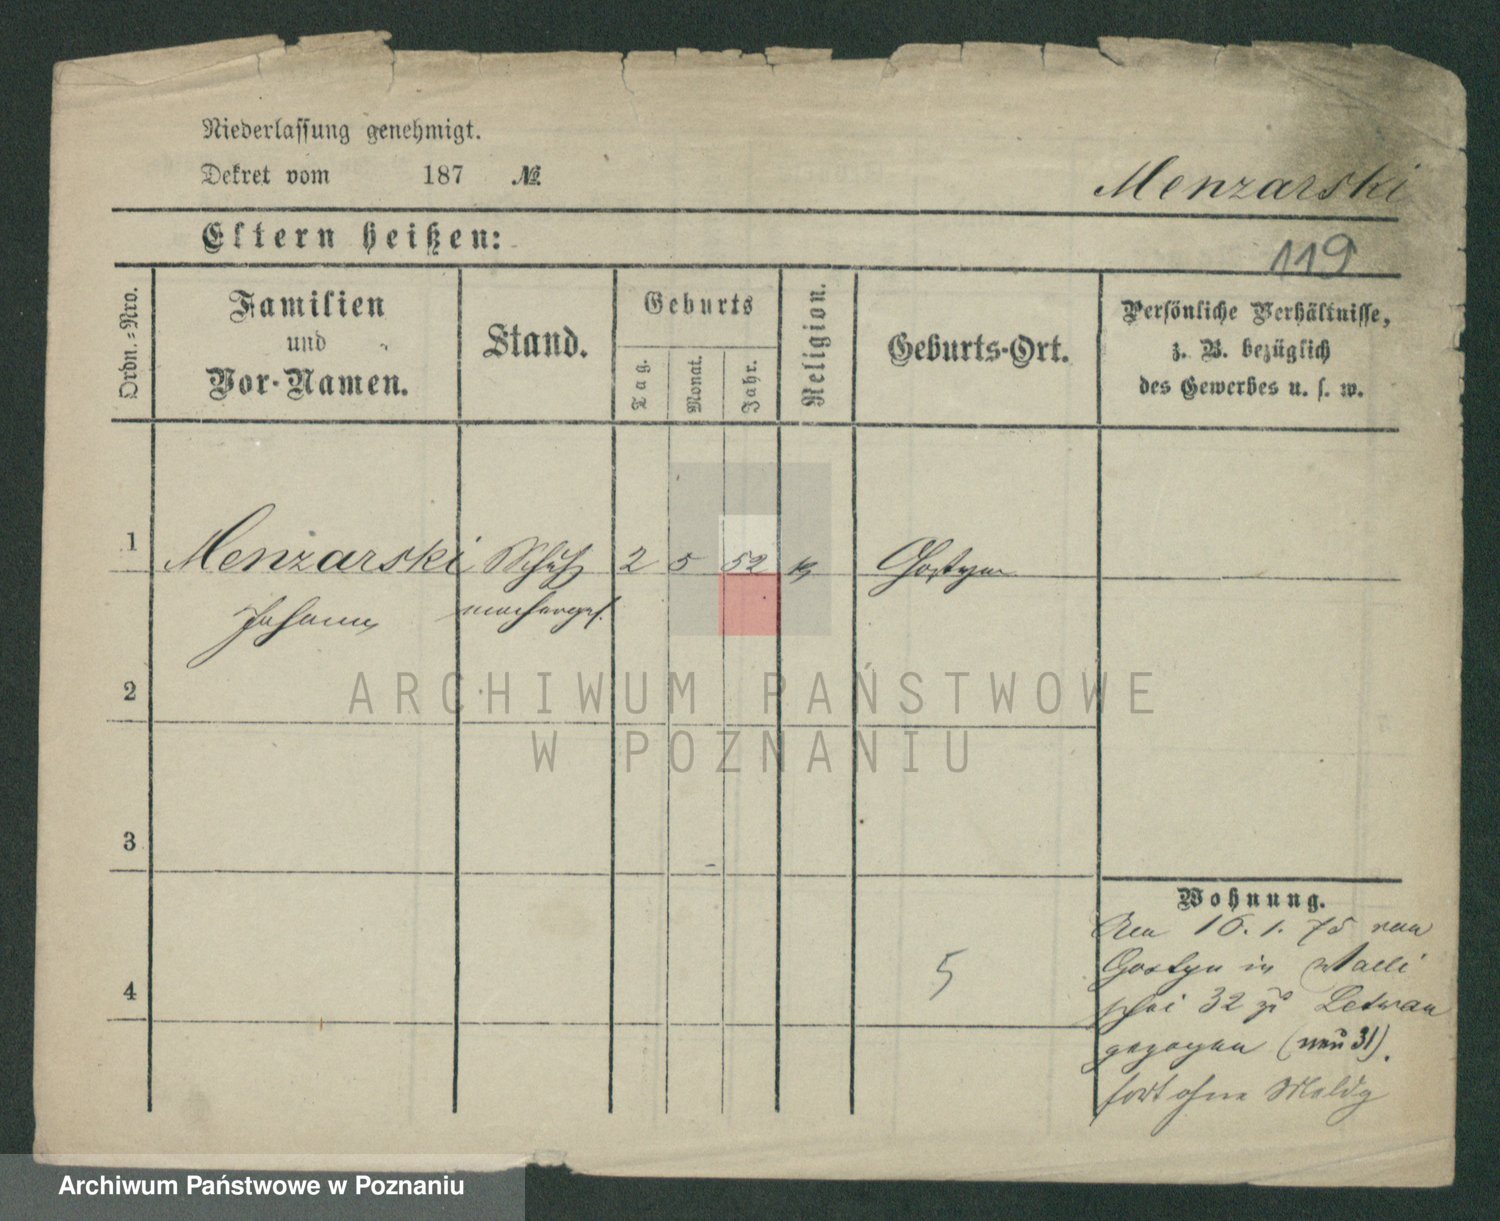 Niederlassung genehmigt.
Dekret vom 187 №
Menzarski
Eltern heißen:
119
Ordn.-Nro.
Familien
und
Vor-Namen.
Stand.
Geburts
Tag.
Monat.
Jahr.
Religion.
Geburts-Ort.
Persönliche Verhältnisse,
z. B. bezüglich
des Gewerbes u. s. w.
1 Menzarski Schuh 2 5 52 k Gostyn
Johann machergs.
2
ARCHIWUM PAŃSTWOWE
W POZNANIU
3
Wohnung.
Am 16. 1. 75 von
Gostyn in Walli
schei 32 zu
gezogen (neu 31).
fort ohne Meldg
4
5
Archiwum Państwowe w Poznaniu